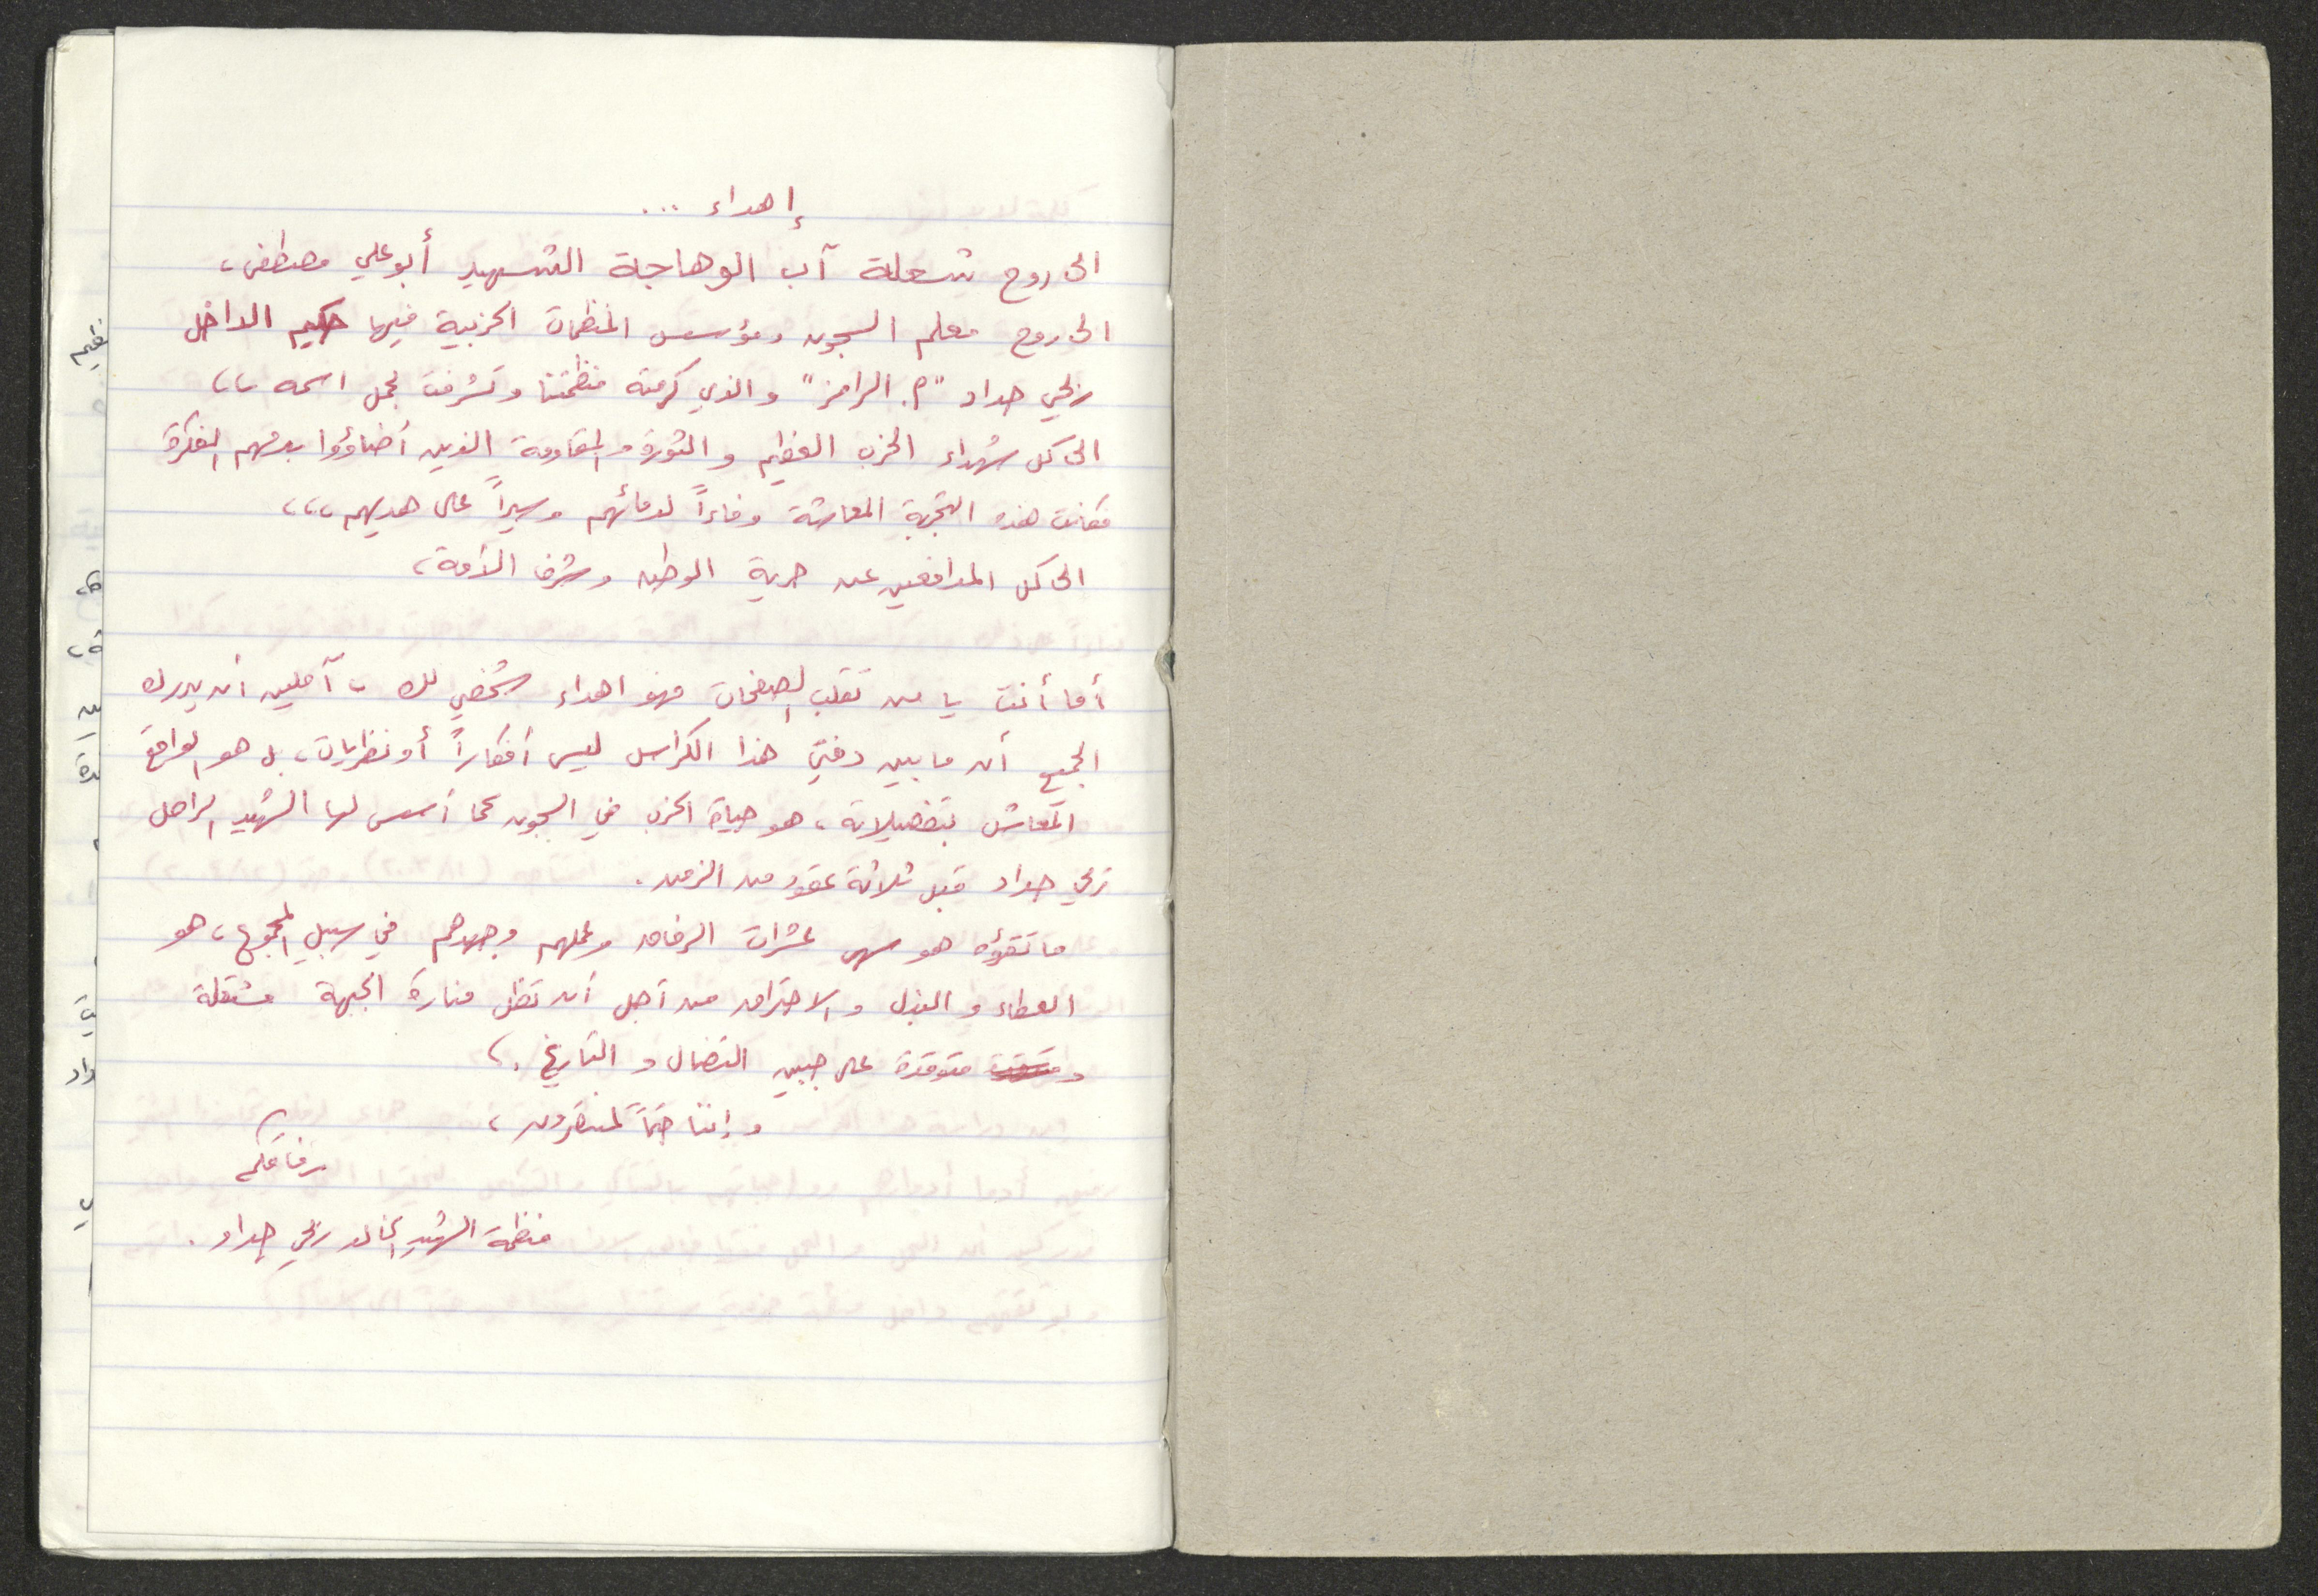 إهداء ...
الى روح شعلة آب الوهاجة الشهيد أبو علي مصطفى،
الى روح معلم السجون ومؤسس المنظمات الحزبية فيها حكيم الداخل
ربحي حداد "م. الرامز" والذي كرمته منظمتنا وتشرفت بحمل اسمه ،،
الى كل شهداء الحزب العظيم والثورة والمقاومة الذين أضاؤوا بدمهم الفكرة
فكانت هذه التجربة المعاشة وفاءاً لدمائهم وسيراً على هديهم ،،،
الى كل المدافعين عن حرية الوطن وشرف الأمة،
أما أنت يا من تقلب الصفحات فهو اهداء شخصي لك ، آملين أن يدرك
الجميع أن ما بين دفتي هذا الكراس ليس أفكاراً أو نظريات، بل هو الواقع
المعاش بتفصيلاته، هو حياة الحزب في السجون كما أسس لها الشهيد الراحل
ربحي حداد قبل ثلاثة عقود من الزمن.
ما تقرؤه هو سهر عشرات الرفاق وعملهم وجهدهم في سبيل المجموع، هو
العطاء والبذل والاحتراق من أجل أن تظل منارة الجبهة مشتعلة
و متوقدة على جبين النضال والتاريخ.،
وإننا حتماً لمنتصرون،
رفاقكم
منظمة الشهيد الخالد ربحي حداد.